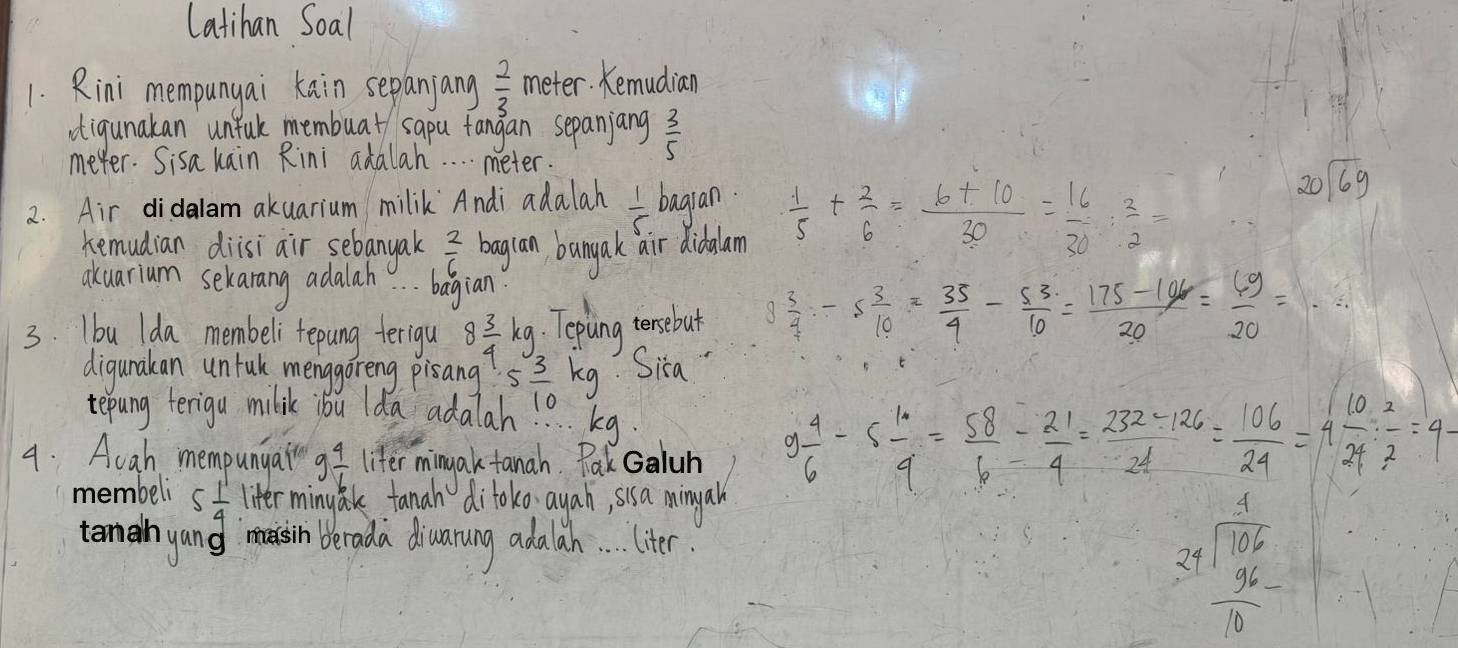 Latihan Soal
1. Rini mempunyai kain sepanjang 2/3 meter. Kemudian
digunakan untuk membuat sapu tangan sepanjang 3/5
meter. Sisa kain Rini adalah .... meter.
2. Air di dalam akuarium milik Andi adalah 1/5 bagian.
Kemudian diisi air sebanyak 2/6 bagian, banyak air didalam
akuarium sekarang adalah ... bagian.
3. Ibu Ida membeli tepung terigu 8 3/4 kg. Tepung tersebut
digunakan untuk menggoreng pisang 5 3/10 kg. Sisa
tepung terigu milik ibu Ida adalah .... kg.
4. Ayah mempunyai 9 4/6 liter minyak tanah. Pak Galuh
membeli 5 1/4 liter minyak tanah di toko ayah, sisa minyak
tanah yang masih berada diwarung adalah .... liter.
1/5 + 2/6 = 6 + 10/30 = 16/30 : 2/2 = ...
20 √69
8 3/4 - 5 3/10 = 35/4 - 53/10 = 175 - 106/20 = 69/20 = ...
9 4/6 - 5 1/4 = 58/6 - 21/4 = 232 - 126/24 = 106/24 = 4 10/24 : 2/2 = 4
4
24 √106
96 -
10